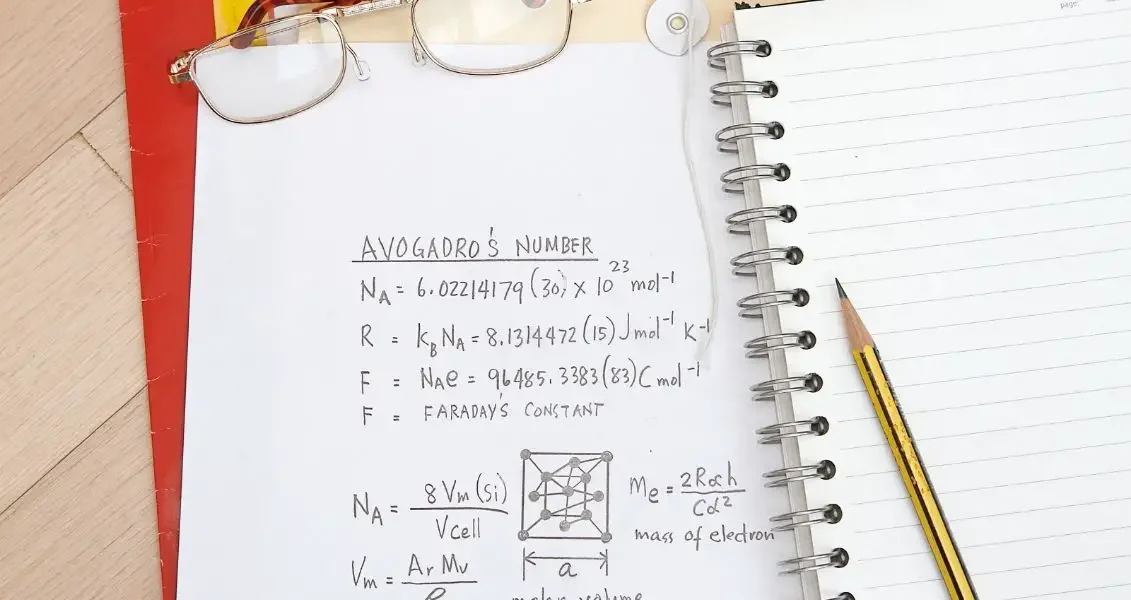 page:
AVOGADRO'S NUMBER
N_A = 6.02214179(30) × 10^23 mol^-1
R = k_B N_A = 8.1314472(15) J mol^-1 K^-1
F = N_A e = 96485.3383(83) C mol^-1
F = FARADAY'S CONSTANT
N_A = 8 V_m (Si) / V cell
M_e = 2R∞h / Cα^2
mass of electron
a
V_m = A_r M_u / ρ
molar volume